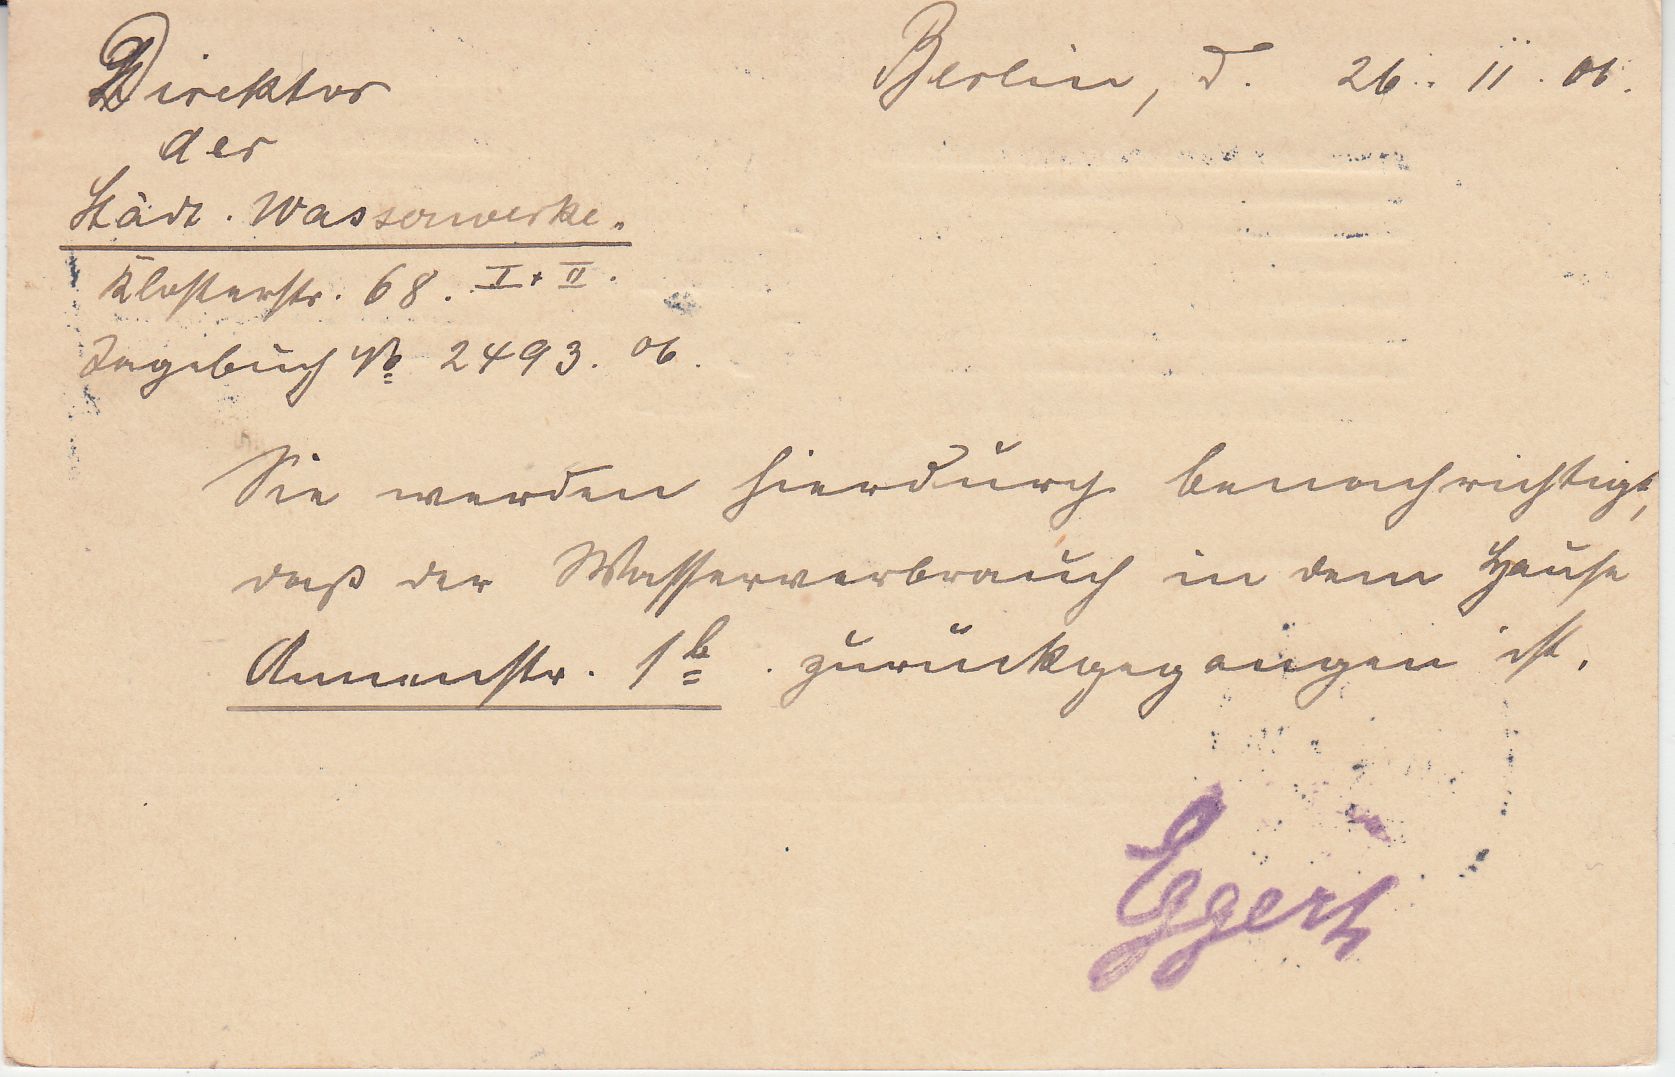 Direktor
der
Städt. Wasserwerke.
Klosterstr. 68. I + II.
Tagebuch № 2493. 06.
Berlin, d. 26. 11. 06.
Sie werden hierdurch benachrichtigt,
daß der Wasserverbrauch in dem Hause
Annenstr. 1b. zurückgegangen ist.
Eggert